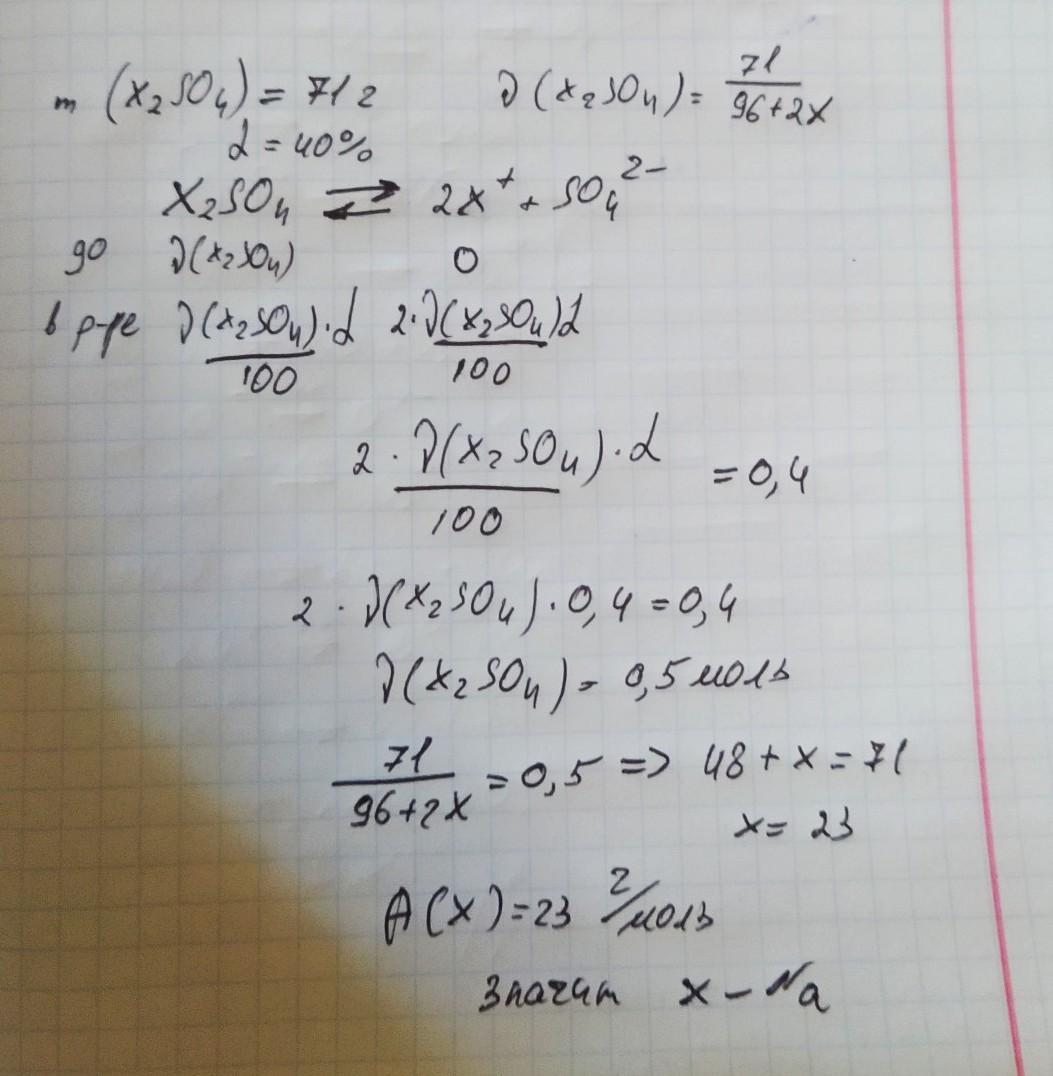 m (x₂SO₄) = 71 г ν(x₂SO₄) = 71/(96+2x)
α = 40%
X₂SO₄ ⇄ 2x⁺ + SO₄²⁻
до ν(x₂SO₄) 0
в р-ре ν(x₂SO₄)·α/100 2·ν(x₂SO₄)α/100
2·ν(x₂SO₄)·α/100 = 0,4
2·ν(x₂SO₄)·0,4 = 0,4
ν(x₂SO₄) = 0,5 моль
71/(96+2x) = 0,5 => 48 + x = 71
x = 23
A(x) = 23 г/моль
Значит x – Na